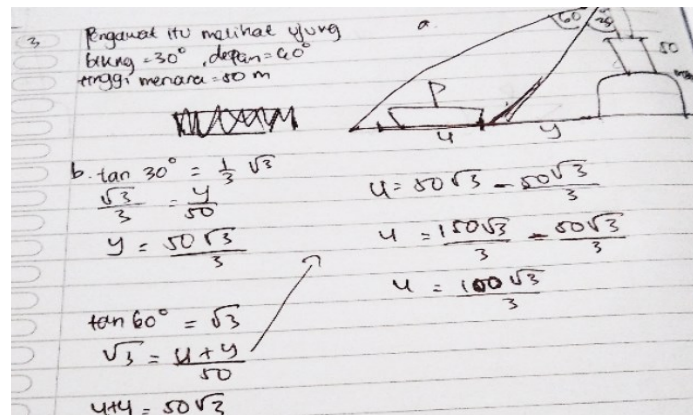 3 Pengawal itu melihat ujung
blkng = 30°, depan = 60°
tinggi menara = 50 m
a.
60
30
50
P
u
y
b. tan 30° = 1/3 √3
√3/3 = y/50
y = 50√3/3
tan 60° = √3
√3 = u + y/50
u+y = 50√3
u = 50√3 - 50√3/3
u = 150√3/3 - 50√3/3
u = 100√3/3